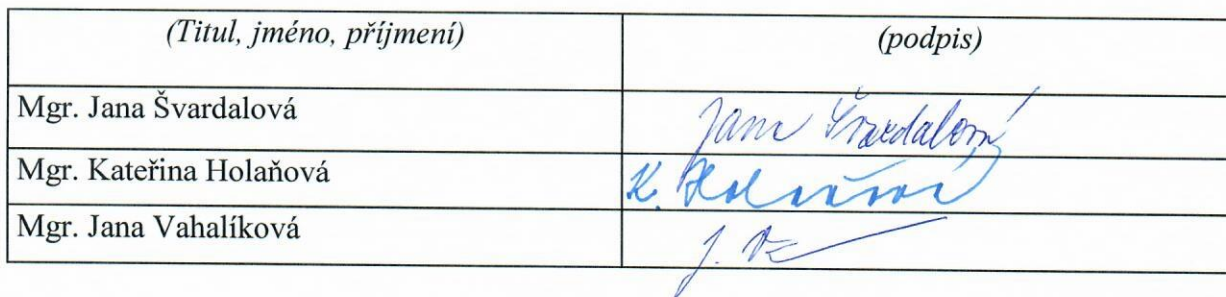 (Titul, jméno, příjmení) (podpis)
Mgr. Jana Švardalová Jana Švardalová
Mgr. Kateřina Holaňová K. Holaňová
Mgr. Jana Vahalíková J.